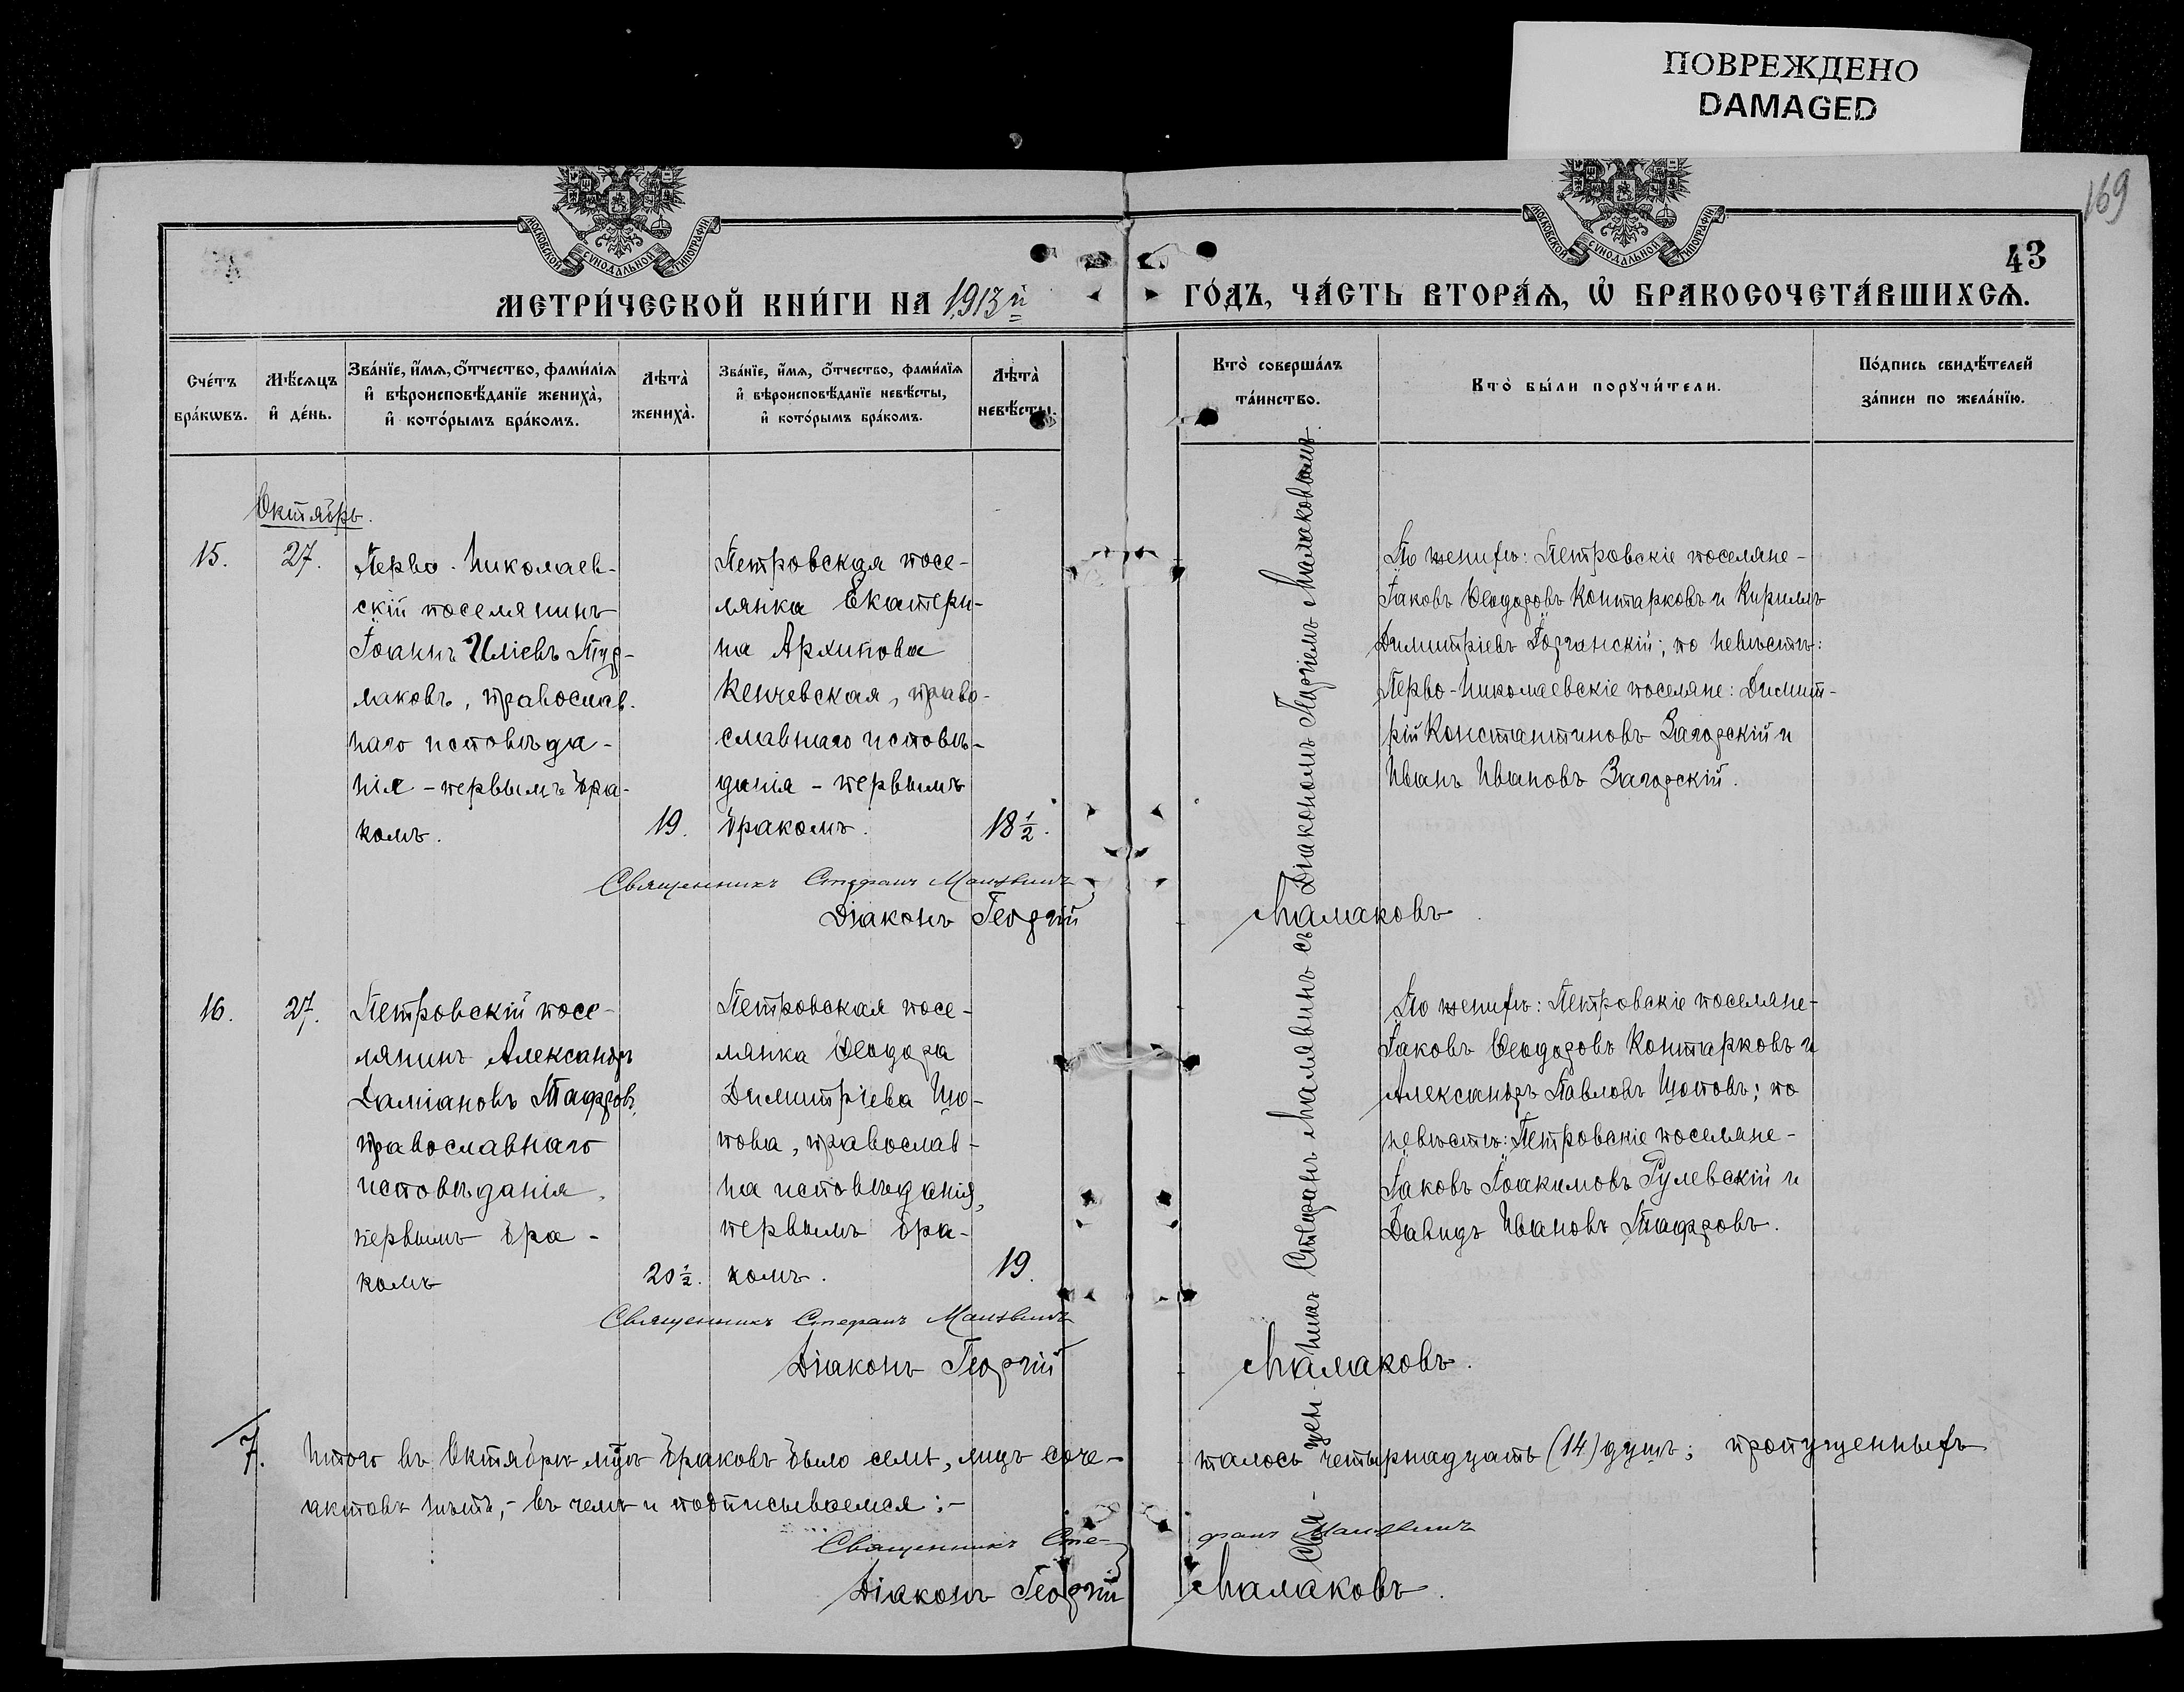 ПОВРЕЖДЕНО
DAMAGED
169
43
МОСКОВСКОЙ СУНОДАЛЬНОЙ ТИПОГРАФІИ
МОСКОВСКОЙ СУНОДАЛЬНОЙ ТИПОГРАФІИ
МЕТРИ́ЧЕСКОЙ КНИ́ГИ НА 1913й
ГО́ДЪ, ЧА́СТЬ ВТОРА́Ѧ, Ѡ҆ БРАКОСОЧЕТА́ВШИХСѦ.
Сче́тъ
бра́кѡвъ.
Мѣ́сѧцъ
и҆ де́нь.
Зва́нїе, и҆́мѧ, ѻ҆́тчество, фами́лїѧ
и҆ вѣроисповѣ́данїе жениха̀,
и҆ кото́рымъ бра́комъ.
Лѣта̀
жениха̀.
Зва́нїе, и҆́мѧ, ѻ҆́тчество, фами́лїѧ
и҆ вѣроисповѣ́данїе невѣ́сты,
и҆ кото́рымъ бра́комъ.
Лѣта̀
невѣ́сты.
Кто̀ соверша́лъ
та́инство.
Кто̀ бы́ли порꙋчи́тели.
По́дпись свидѣ́телей
за́писи по жела́нїю.
Октябрь.
15.
27.
Перво-Николаев-
скій поселянинъ
Іоаннъ Иліевъ Туд-
маковъ, православ-
наго исповѣда-
нія - первымъ бра-
комъ.
19.
Петровская посе-
лянка Екатери-
на Архипова
Кенчевская, право-
славнаго исповѣ-
данія - первымъ
бракомъ.
18½.
Священникъ Стефанъ Малявинъ
Діаконъ Георгій Малаковъ
По женихѣ: Петровскіе поселяне-
Іаковъ Ѳеодоровъ Контарковъ и Кириллъ
Димитріевъ Горчанскій; по невѣстѣ:
Перво-Николаевскіе поселяне: Димит-
рій Константиновъ Загорскій и
Иванъ Ивановъ Загорскій.
16.
27.
Петровскій посе-
лянинъ Александръ
Даміановъ Тафровъ,
православнаго
исповѣданія,
первымъ бра-
комъ
20½.
Петровская посе-
лянка Ѳеодора
Димитріева Шо-
пова, православ-
на исповѣданія,
первымъ бра-
комъ.
19.
Священникъ Стефанъ Малявинъ
Діаконъ Георгій Малаковъ.
По женихѣ: Петровскіе поселяне-
Іаковъ Ѳеодоровъ Контарковъ и
Александръ Павловъ Шоповъ; по
невѣстѣ: Петровскіе поселяне-
Іаковъ Іоакимовъ Гулевскій и
Давидъ Ивановъ Тафровъ.
Свя-щен-никъ Стефанъ Малявинъ съ Діакономъ Георгіемъ Малаковымъ.
7. Итого въ Октябрѣ мцѣ браковъ было семь, лицъ соче-талось четырнадцать (14) душъ; пропущенныхъ
актовъ нѣтъ, - въ чемъ и подписываемся:-
Священникъ Сте-фанъ Малявинъ
Діаконъ Георгій Малаковъ.